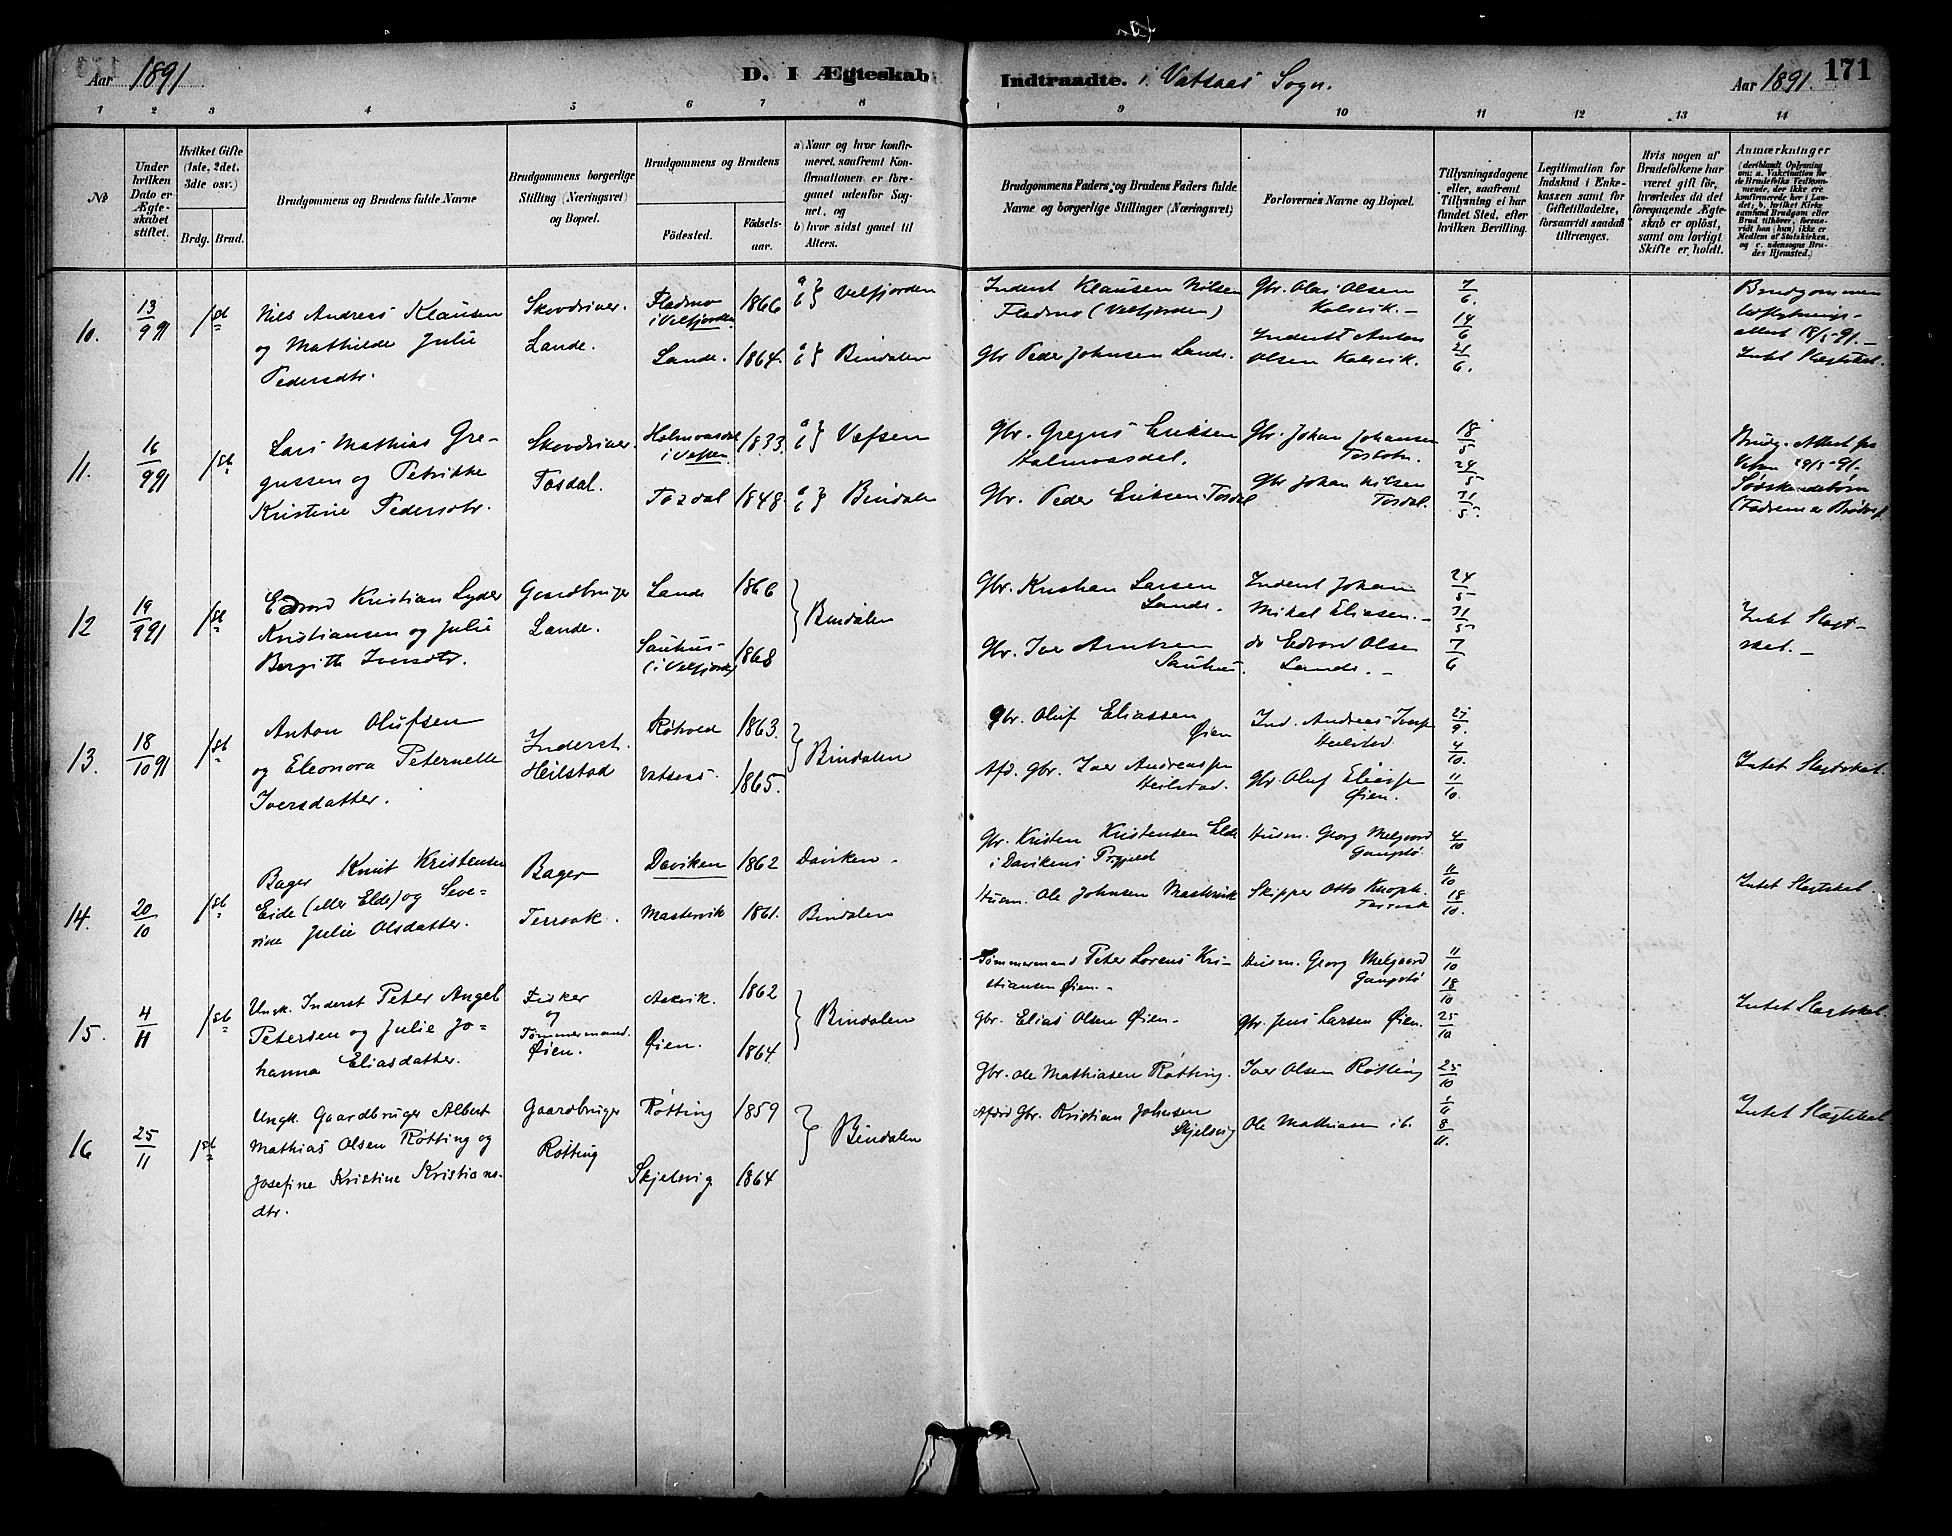 Aar 1891
D. I Ægteskab Indtraadte. i Vatsaas Sogn.
Aar 1891. 171
1 2 3 4 5 6 7 8 9 10 11 12 13 14
No
Under hvilken Dato er Ægteskabet stiftet.
Hvilket Gifte (1ste, 2det, 3die osv.)
Brdg. Brud.
Brudgommens og Brudens fulde Navne
Brudgommens borgerlige Stilling (Næringsvei) og Bopæl.
Brudgommens og Brudens
Fødested.
Fødselsaar.
a) Naar og hvor konfirmeret, saafremt Konfirmationen er foregaaet udenfor Sognet, og
b) hvor sidst gaaet til Alters.
Brudgommens Faders og Brudens Faders fulde Navne og borgerlige Stillinger (Næringsvei)
Forlovernes Navne og Bopæl.
Tillysningsdagene eller, saafremt Tillysning ei har fundet Sted, efter hvilken Bevilling.
Legitimation for Indskud i Enkekassen samt for Giftetilladelse, forsaavidt saadan tiltrænges.
Hvis nogen af Brudefolkene har været gift før, hvorledes da det foregaaende Ægteskab er opløst, samt om lovligt Skifte er holdt.
Anmærkninger
(deriblandt Oplysning om: a. Vakcination for de Brudefolks Vedkommende, der ikke ere konfirmerede her i Landet; b. hvilket Kirkesamfund Brudgom eller Brud tilhører, forsaavidt han (hun) ikke er Medlem af Statskirken, og c. udensogns Brudes Hjemsted.)
10.
13/9 91
1ste
Nils Andreas Klausen
og Mathilde Julie
Pedersdtr.
Skovdriver.
Lande.
Fladmo
i Velfjorden
1866
Lande. 1864.
a b } Velfjorden
a b } Bindalen
Inderst Klausen Nilsen
Fladmo (Velfjorden)
Gbr Peder Johnsen Lande.
Gbr. Olai Olsen
Kalsvik.
Inderst Anton
Olsen Kalsvik.
7/6. 14/6 21/6.
Brudgommen
Udflytnings-
attest 18/5-91.
Intet Slægtskab.
11.
16/9 91
1ste
Lars Mathias Gre-
gussen og Petrikke
Kristine Pedersdtr.
Skovdriver.
Tosdal.
Halmoasdal
i Vefsen
1833.
Tosdal 1848.
a b } Vefsen
a b } Bindalen
Gbr. Gregus Eriksen
Halmoasdal.
Gbr. Peder Eriksen Tosdal
Gbr. Johan Johansen
Tosbotn.
Gbr Johan Nilsen
Tosdal.
18/5 24/5 31/5.
Brudg. Attest fra
Vefsn 29/5-91.
Sødskendebørn
(Fædrene er Brødre).
12
19/9 91
1ste
Edvard Kristian Lyder
Kristiansen og Julie
Bergith Iversdtr.
Gaardbruger
Lande.
Lande 1866
Sauhus
(i Velfjorden)
1868
} Bindalen
Gbr. Kristian Larsen
Lande.
Gbr. Iver Arntsen
Sauhus.
Inderst Johan
Mikal Eliasen.
do Edvard Olsen
Lande.
24/5 31/5 7/6
Intet Slægt-
skab.
13.
18/10 91
1ste
Anton Olufsen
og Eleonora Peternelle
Iversdatter.
Inderst.
Heilstad
1863.
Vatsaas. 1865.
} Bindalen
Gbr. Oluf Eliassen
Øien
Afd. Gbr. Iver Andreassen
Heilstad.
Ind. Andreas Iversen
Heilstad
Gbr Oluf Eliassen
Øien.
27/9. 4/10. 11/10.
Intet Slægtskab.
14.
20/10
1ste
Bager Knut Kristensen
Eide (eller Elde) og Seve-
rine Julie Olsdatter.
Bager
Terraak.
Daviken 1862
Mastervik 1861.
Daviken.
Bindalen
Gbr. Kristen Kristensen Elde
i Davikens Prgjeld
Husm. Ole Johnsen Mastervik
Husm. Georg Melgaard
Gangstø.
Skipper Otto Knoph
Terraak
4/10 11/10 18/10.
Intet Slægtskab.
15.
4/11
1ste
Ungk. Inderst Peter Angel
Petersen og Julie Jo-
hanna Eliasdatter.
Fisker
og
Tømmermand.
Øien.
Aakvik. 1862
Øien. 1864
} Bindalen
Tømmermand Peter Lorens Kri-
stiansen Øien.
Gbr. Elias Olsen Øien.
Husm. Georg Melgaard
Gangstø
Gbr. Jens Larsen Øien.
11/10 18/10 25/10
Intet Slægtskab.
16
25/11
1ste
Ungk. Gaardbruger Albert
Mathias Olsen Røtting og
Josefine Kristine Kristians-
dtr.
Gaardbruger
Røtting
Røtting 1859
Skjelsvig 1864
} Bindalen
Gbr. Ole Mathiasen Røtting.
Afdød Gbr. Kristian Johnsen
Skjelsvig
Iver Olsen Røtting
Ole Mathiasen ib.
25/10 1/11 8/11.
Intet Slægtskab